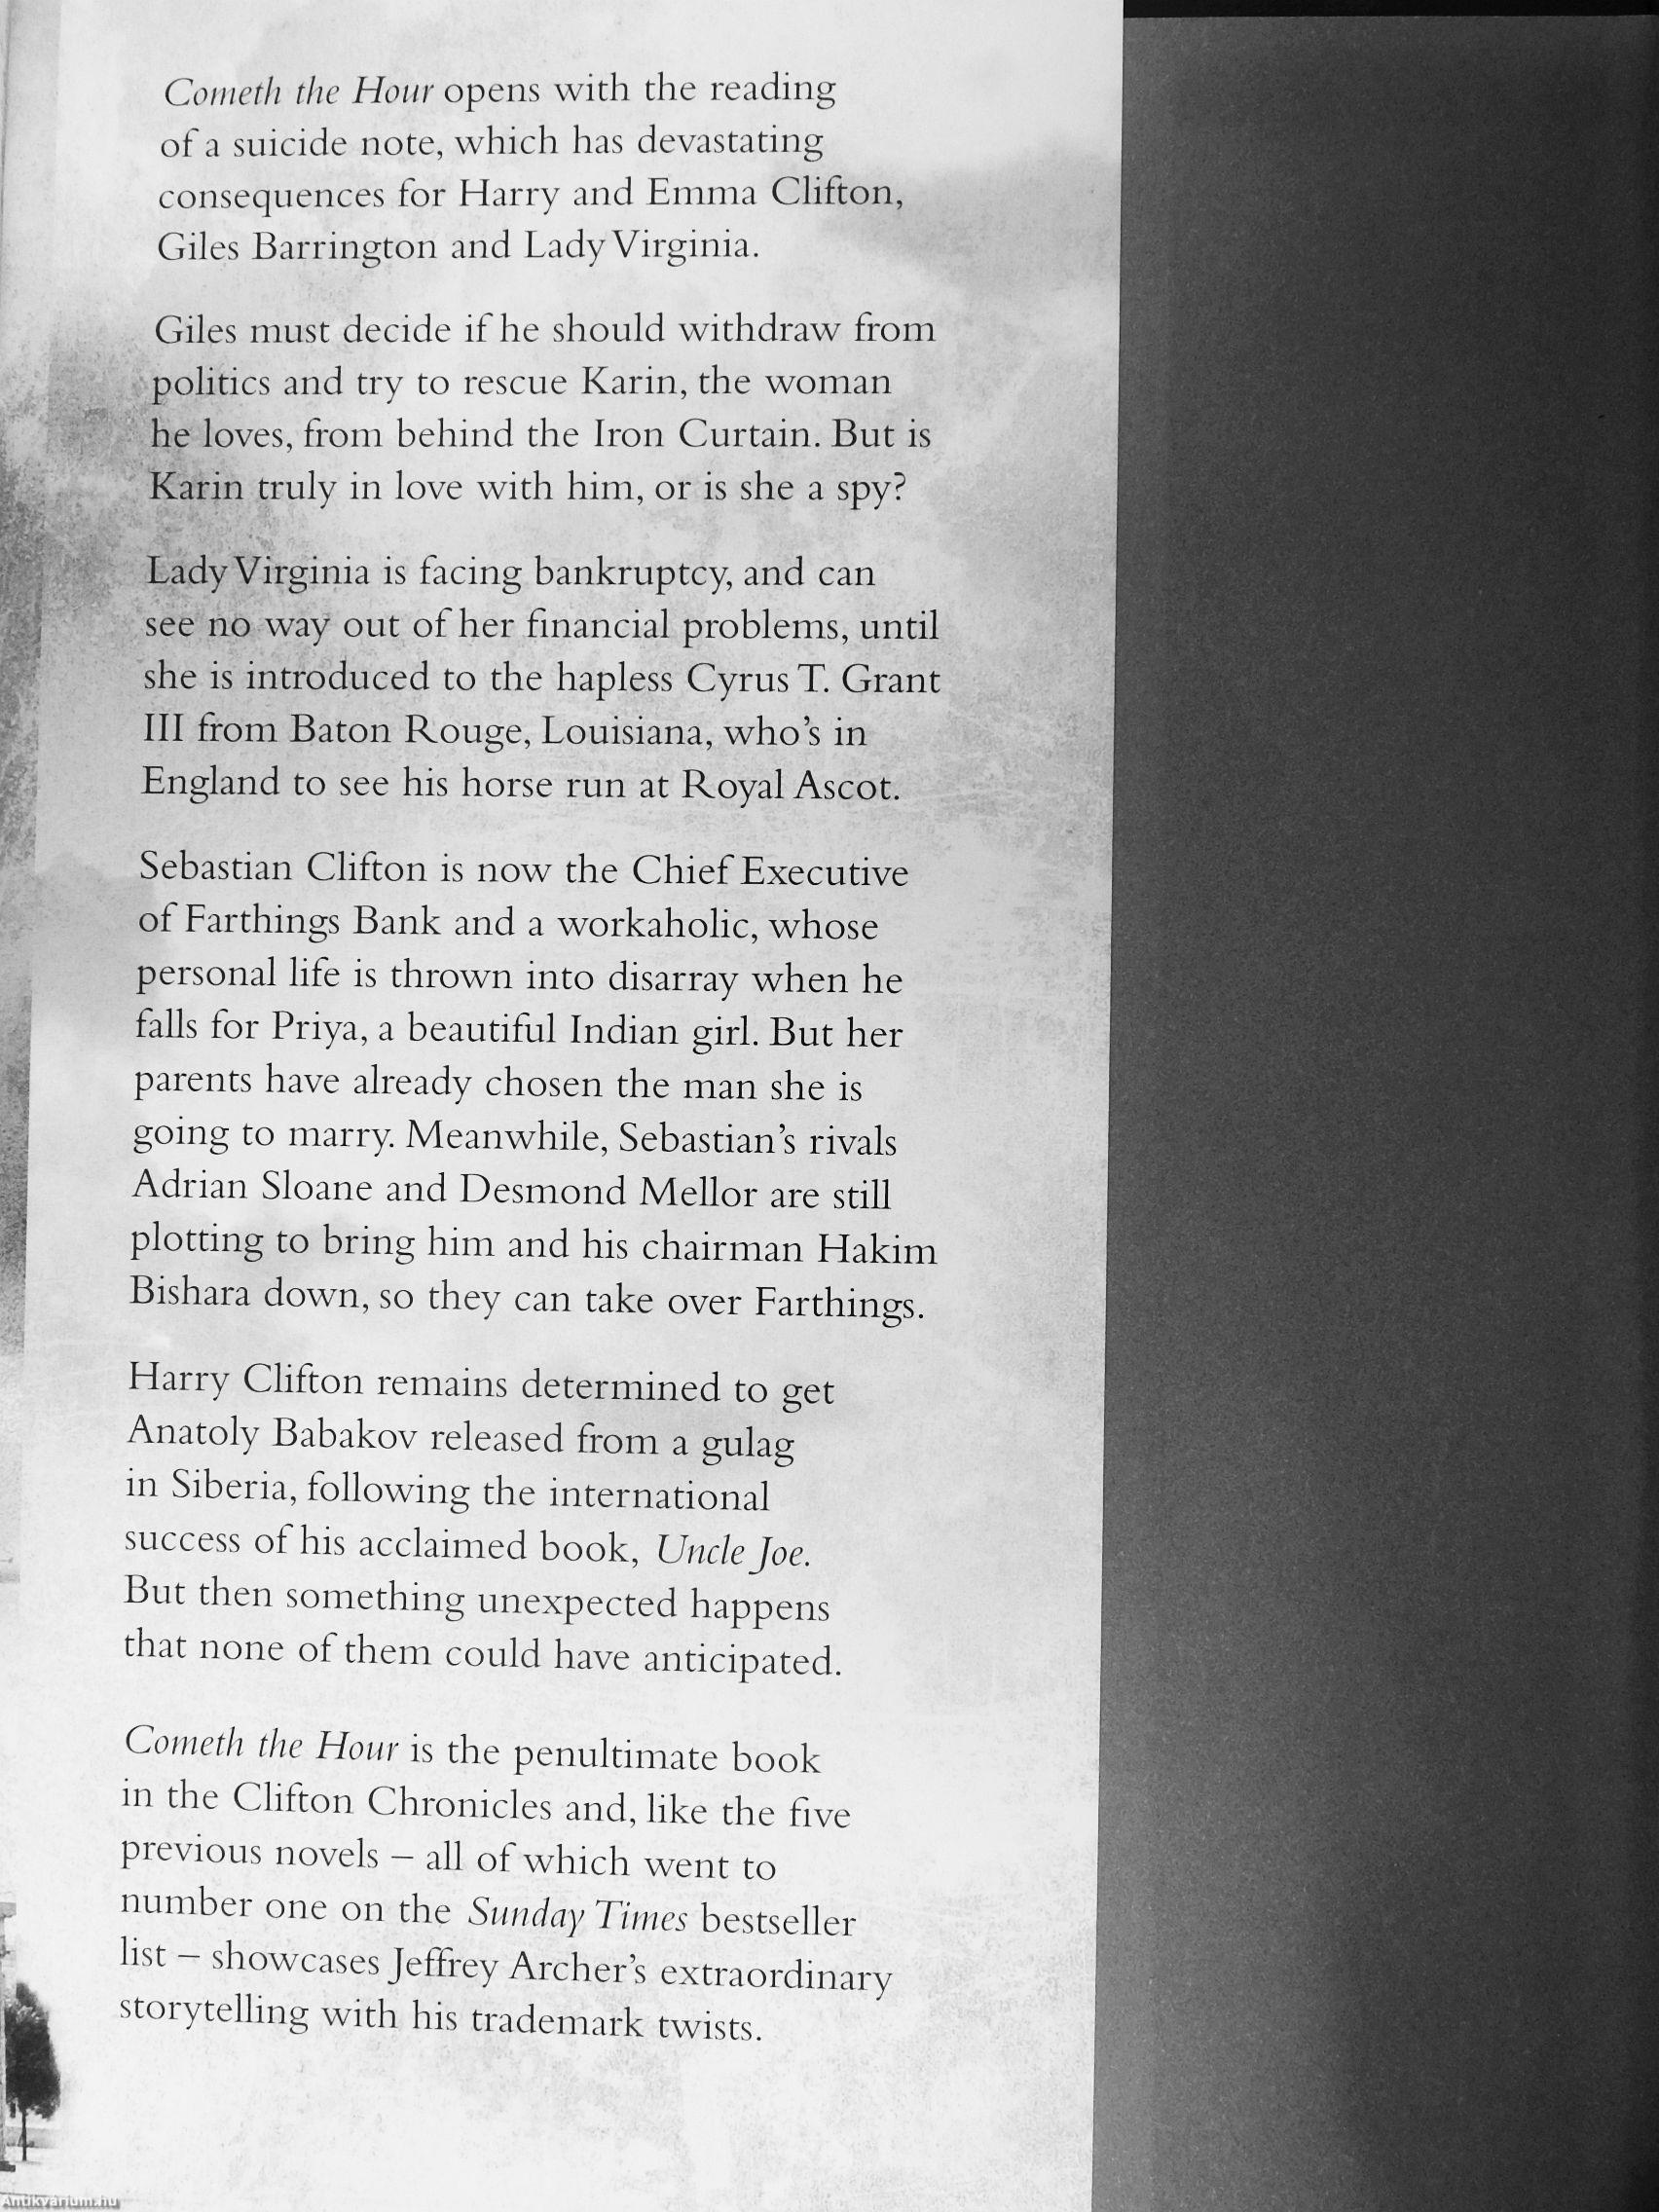 Cometh the Hour opens with the reading
of a suicide note, which has devastating
consequences for Harry and Emma Clifton,
Giles Barrington and Lady Virginia.
Giles must decide if he should withdraw from
politics and try to rescue Karin, the woman
he loves, from behind the Iron Curtain. But is
Karin truly in love with him, or is she a spy?
Lady Virginia is facing bankruptcy, and can
see no way out of her financial problems, until
she is introduced to the hapless Cyrus T. Grant
III from Baton Rouge, Louisiana, who’s in
England to see his horse run at Royal Ascot.
Sebastian Clifton is now the Chief Executive
of Farthings Bank and a workaholic, whose
personal life is thrown into disarray when he
falls for Priya, a beautiful Indian girl. But her
parents have already chosen the man she is
going to marry. Meanwhile, Sebastian’s rivals
Adrian Sloane and Desmond Mellor are still
plotting to bring him and his chairman Hakim
Bishara down, so they can take over Farthings.
Harry Clifton remains determined to get
Anatoly Babakov released from a gulag
in Siberia, following the international
success of his acclaimed book, Uncle Joe.
But then something unexpected happens
that none of them could have anticipated.
Cometh the Hour is the penultimate book
in the Clifton Chronicles and, like the five
previous novels – all of which went to
number one on the Sunday Times bestseller
list – showcases Jeffrey Archer’s extraordinary
storytelling with his trademark twists.
Antikvarium.hu